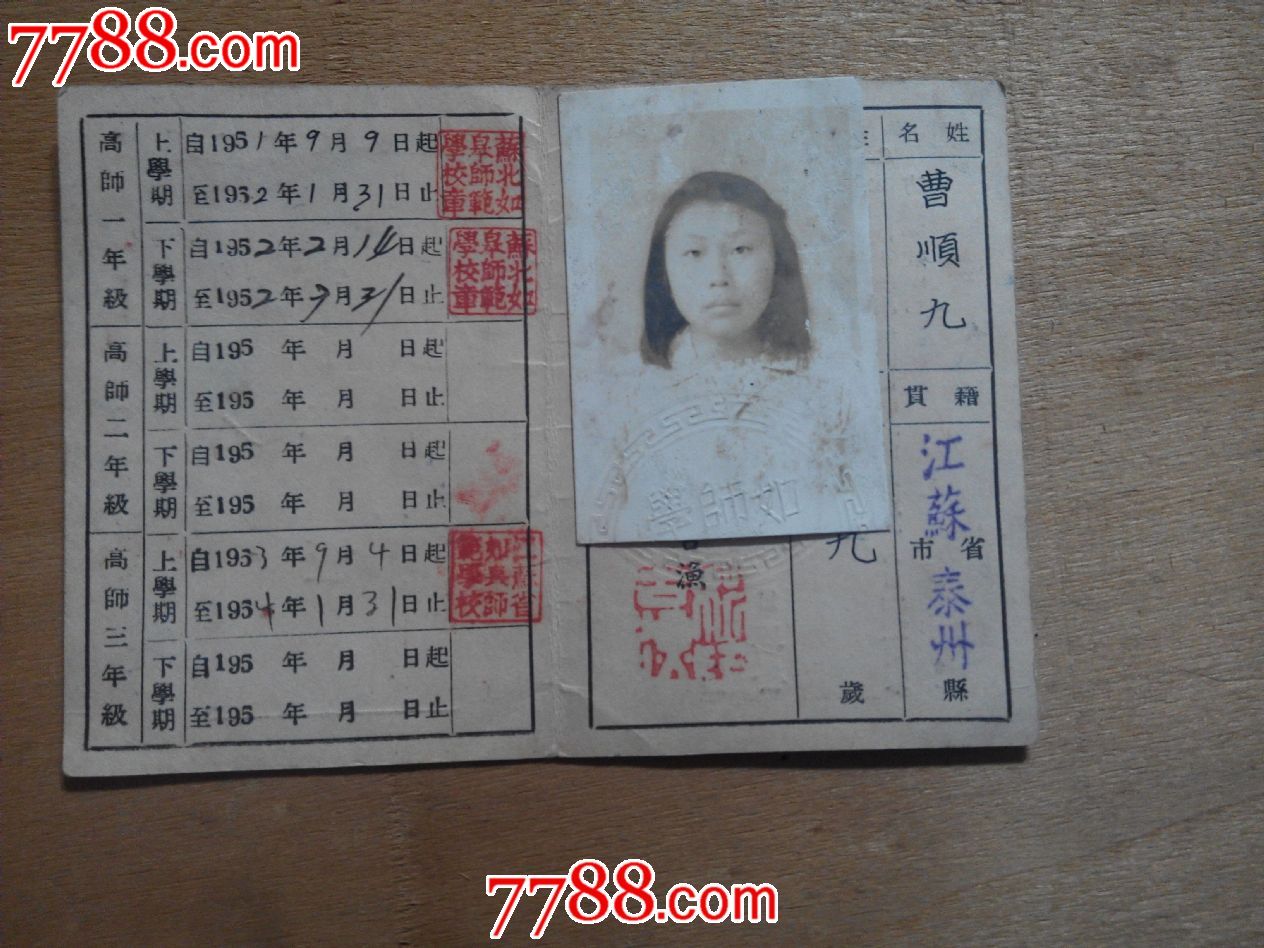 7788.com
高師一年級
上學期
自1951年9月9日起
至1952年1月31日止
蘇北如
皋師範
學校章
下學期
自1952年2月14日起
至1952年7月31日止
蘇北如
皋師範
學校章
高師二年級
上學期
自195 年 月 日起
至195 年 月 日止
下學期
自195 年 月 日起
至195 年 月 日止
高師三年級
上學期
自1953年9月4日起
至1954年1月31日止
江蘇省
範學校
下學期
自195 年 月 日起
至195 年 月 日止
姓名
曹順九
籍貫
江蘇省
市
泰州
縣
九
歲
漁
如師學
7788.com